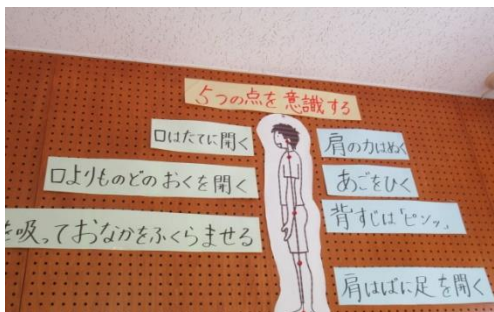 5つの点を意識する
口はたてに開く
口よりものどのおくを開く
を吸っておなかをふくらませる
肩の力はぬく
あごをひく
背すじは「ピンッ」
肩はばに足を開く